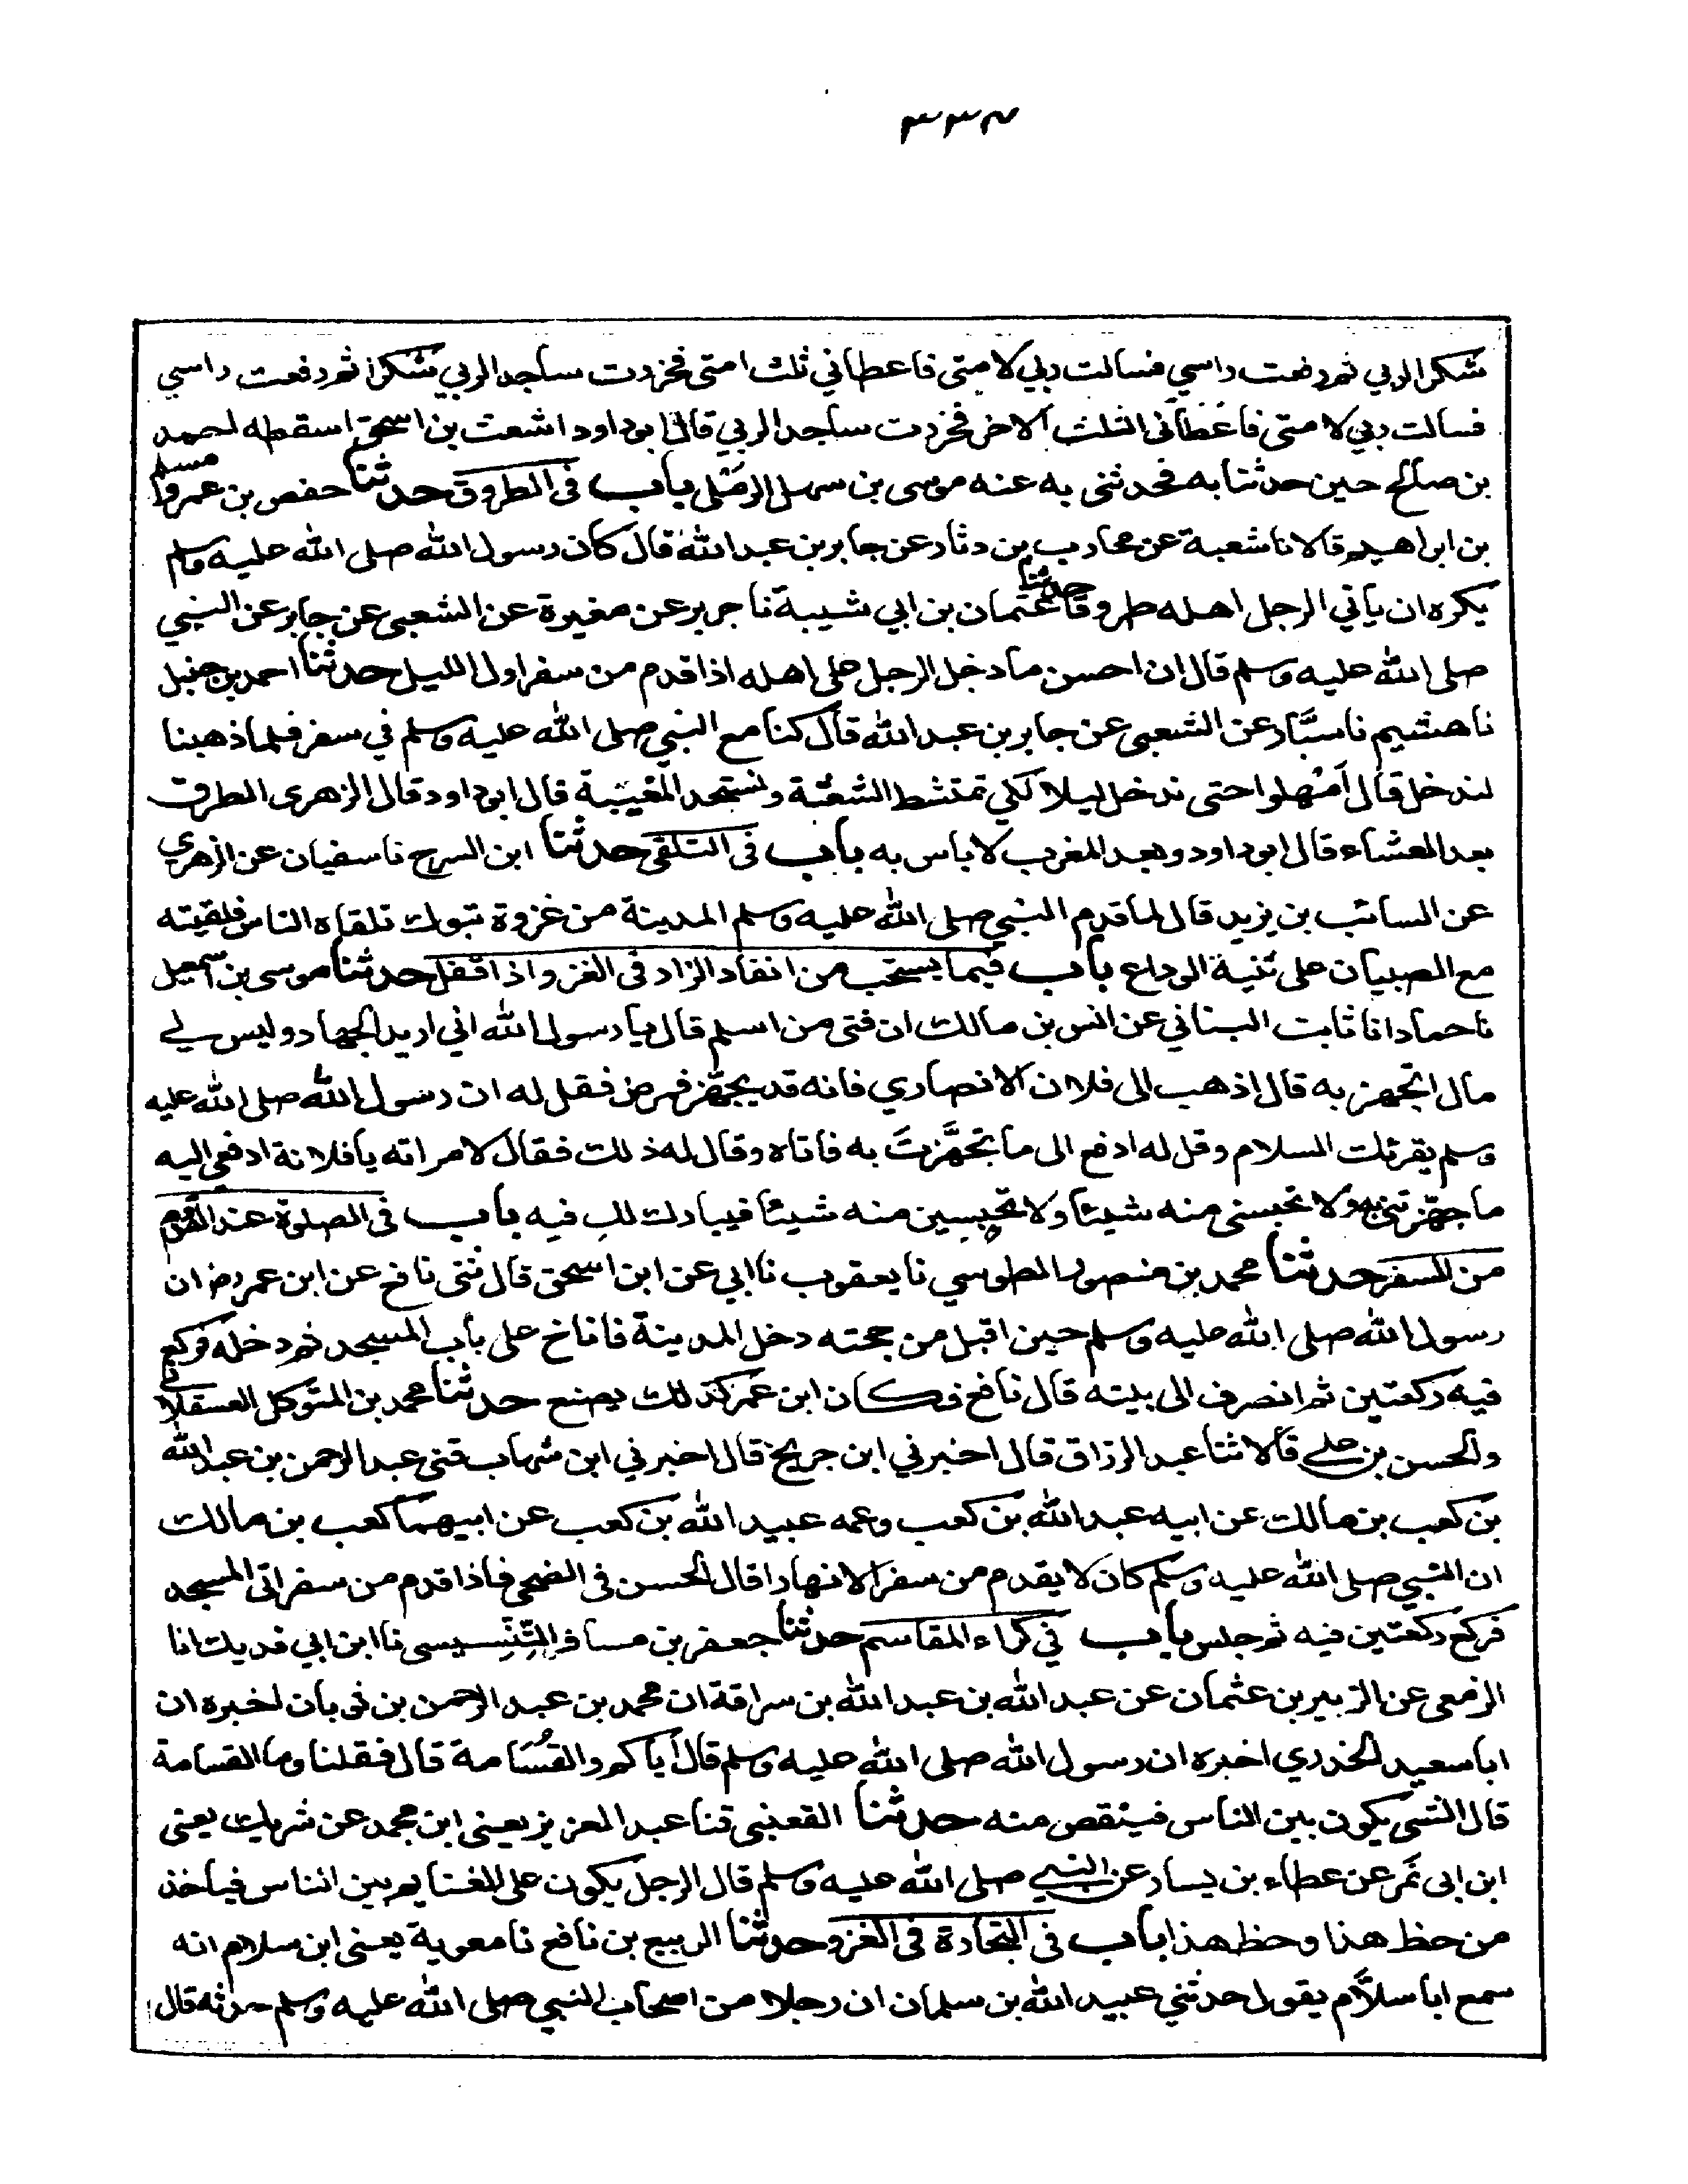 ٣٣٧
شكرا لربي ثم رفعت راسي فسالت ربي لامتى فاعطاني ثلث امتى فخررت ساجدا لربي شكرا ثم رفعت راسي
فسالت ربي لامتى فاعطانى الثلث الاخر فخررت ساجدا لربي قال ابو داود اشعث بن اسحق اسقطه احمد
بن صالح حين حدثنا به فحدثنى به عنه موسى بن سهل الرملى باب فى الطروق حدثنا حفص بن عمرو مسلم
بن ابراهيم قالا نا شعبة عن محارب بن دثار عن جابر بن عبد الله قال كان رسول الله صلى الله عليه وسلم
يكره ان ياتي الرجل اهله طروقا حدثنا عثمان بن ابي شيبة نا جرير عن مغيرة عن الشعبى عن جابر عن النبي
صلى الله عليه وسلم قال ان احسن ما دخل الرجل على اهله اذا قدم من سفر اول الليل حدثنا احمد بن حنبل
نا هشيم نا سيّار عن الشعبى عن جابر بن عبد الله قال كنا مع النبي صلى الله عليه وسلم في سفر فلما ذهبنا
لندخل قال امهلوا حتى ندخل ليلا لكي تمتشط الشعثة وتستحد المغيبة قال ابو داود قال الزهرى الطرق
بعد العشاء قال ابو داود وبعد المغرب لا باس به باب فى التلقى حدثنا ابن السرح نا سفيان عن الزهري
عن السائب بن يزيد قال لما قدم النبي صلى الله عليه وسلم المدينة من غزوة تبوك تلقاه الناس فلقيته
مع الصبيان على ثنية الوداع باب فيما يستحب من انفاد الزاد فى الغزو اذا قفل حدثنا موسى بن اسمعيل
نا حماد انا ثابت البناني عن انس بن مالك ان فتى من اسلم قال يا رسول الله اني اريد الجهاد وليس لي
مال اتجهز به قال اذهب الى فلان الانصاري فانه قد يجهّز فمرض فقل له ان رسول الله صلى الله عليه
وسلم يقرئك السلام وقل له ادفع الى ما تجهَّزتَ به فاتاه وقال له ذلك فقال لامراته يا فلانة ادفعي اليه
ما جهّزتني به ولا تحبسى منه شيئا ولا تحبسين منه شيئا فيبارك لكِ فيه باب فى الصلوة عند القدوم
من السفر حدثنا محمد بن منصور الطوسي نا يعقوب نا ابي عن ابن اسحق قال ثنى نافع عن ابن عمر رض ان
رسول الله صلى الله عليه وسلم حين اقبل من حجته دخل المدينة فاناخ على باب المسجد ثم دخله فركع
فيه ركعتين ثم انصرف الى بيته قال نافع فكان ابن عمر كذلك يصنع حدثنا محمد بن المتوكل العسقلاني
والحسن بن علي قالا ثنا عبد الرزاق قال اخبرني ابن جريج قال اخبرني ابن شهاب قثنى عبد الرحمن بن عبد الله
بن كعب بن مالك عن ابيه عبد الله بن كعب وعمه عبيد الله بن كعب عن ابيهما كعب بن مالك
ان النبي صلى الله عليه وسلم كان لا يقدم من سفر الا نهارا قال الحسن فى الضحى فاذا قدم من سفر اتى المسجد
فركع ركعتين فيه ثم جلس باب في كراء المقاسم حدثنا جعفر بن مسافر التِّنِّيسى نا ابن ابي فديك انا
الزمعى عن الزبير بن عثمان عن عبد الله بن عبد الله بن سراقة ان محمد بن عبد الرحمن بن ثوبان اخبره ان
ابا سعيد الخدري اخبره ان رسول الله صلى الله عليه وسلم قال اياكم والقُسَامة قال فقلنا وما القسامة
قال الشى يكون بين الناس فينقص منه حدثنا القعنبى قثنا عبد العزيز يعنى ابن محمد عن شريك يعنى
ابن ابى نَمر عن عطاء بن يسار عن النبي صلى الله عليه وسلم قال الرجل يكون على الفئام بين الناس فياخذ
من حظ هذا وحظ هذا باب فى التجارة فى الغزو حدثنا الربيع بن نافع نا معوية يعنى ابن سلام انه
سمع ابا سلّام يقول حدثني عبيد الله بن سلمان ان رجلا من اصحاب النبي صلى الله عليه وسلم حدثه قال